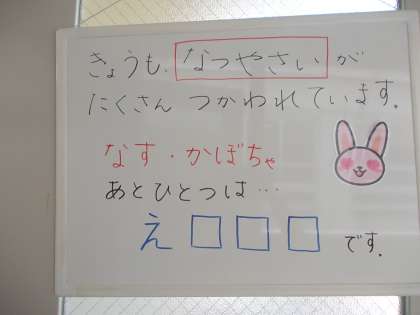 きょうも、なつやさいが
たくさん つかわれています。
なす・かぼちゃ
あとひとつは…
え□□□です。